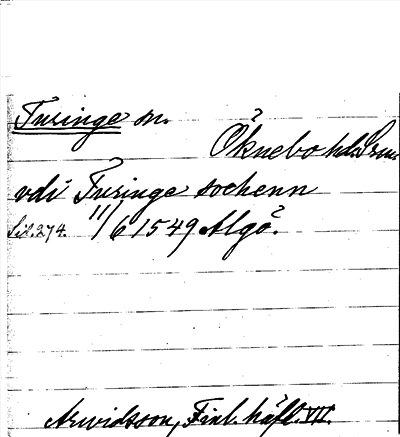 Turinge sn.
Öknebo hd. Srm.
vdi Turinge sochenn
Sid. 274. 11/6 1549 Algö.
Arwidsson, Finl. häfd. VII.